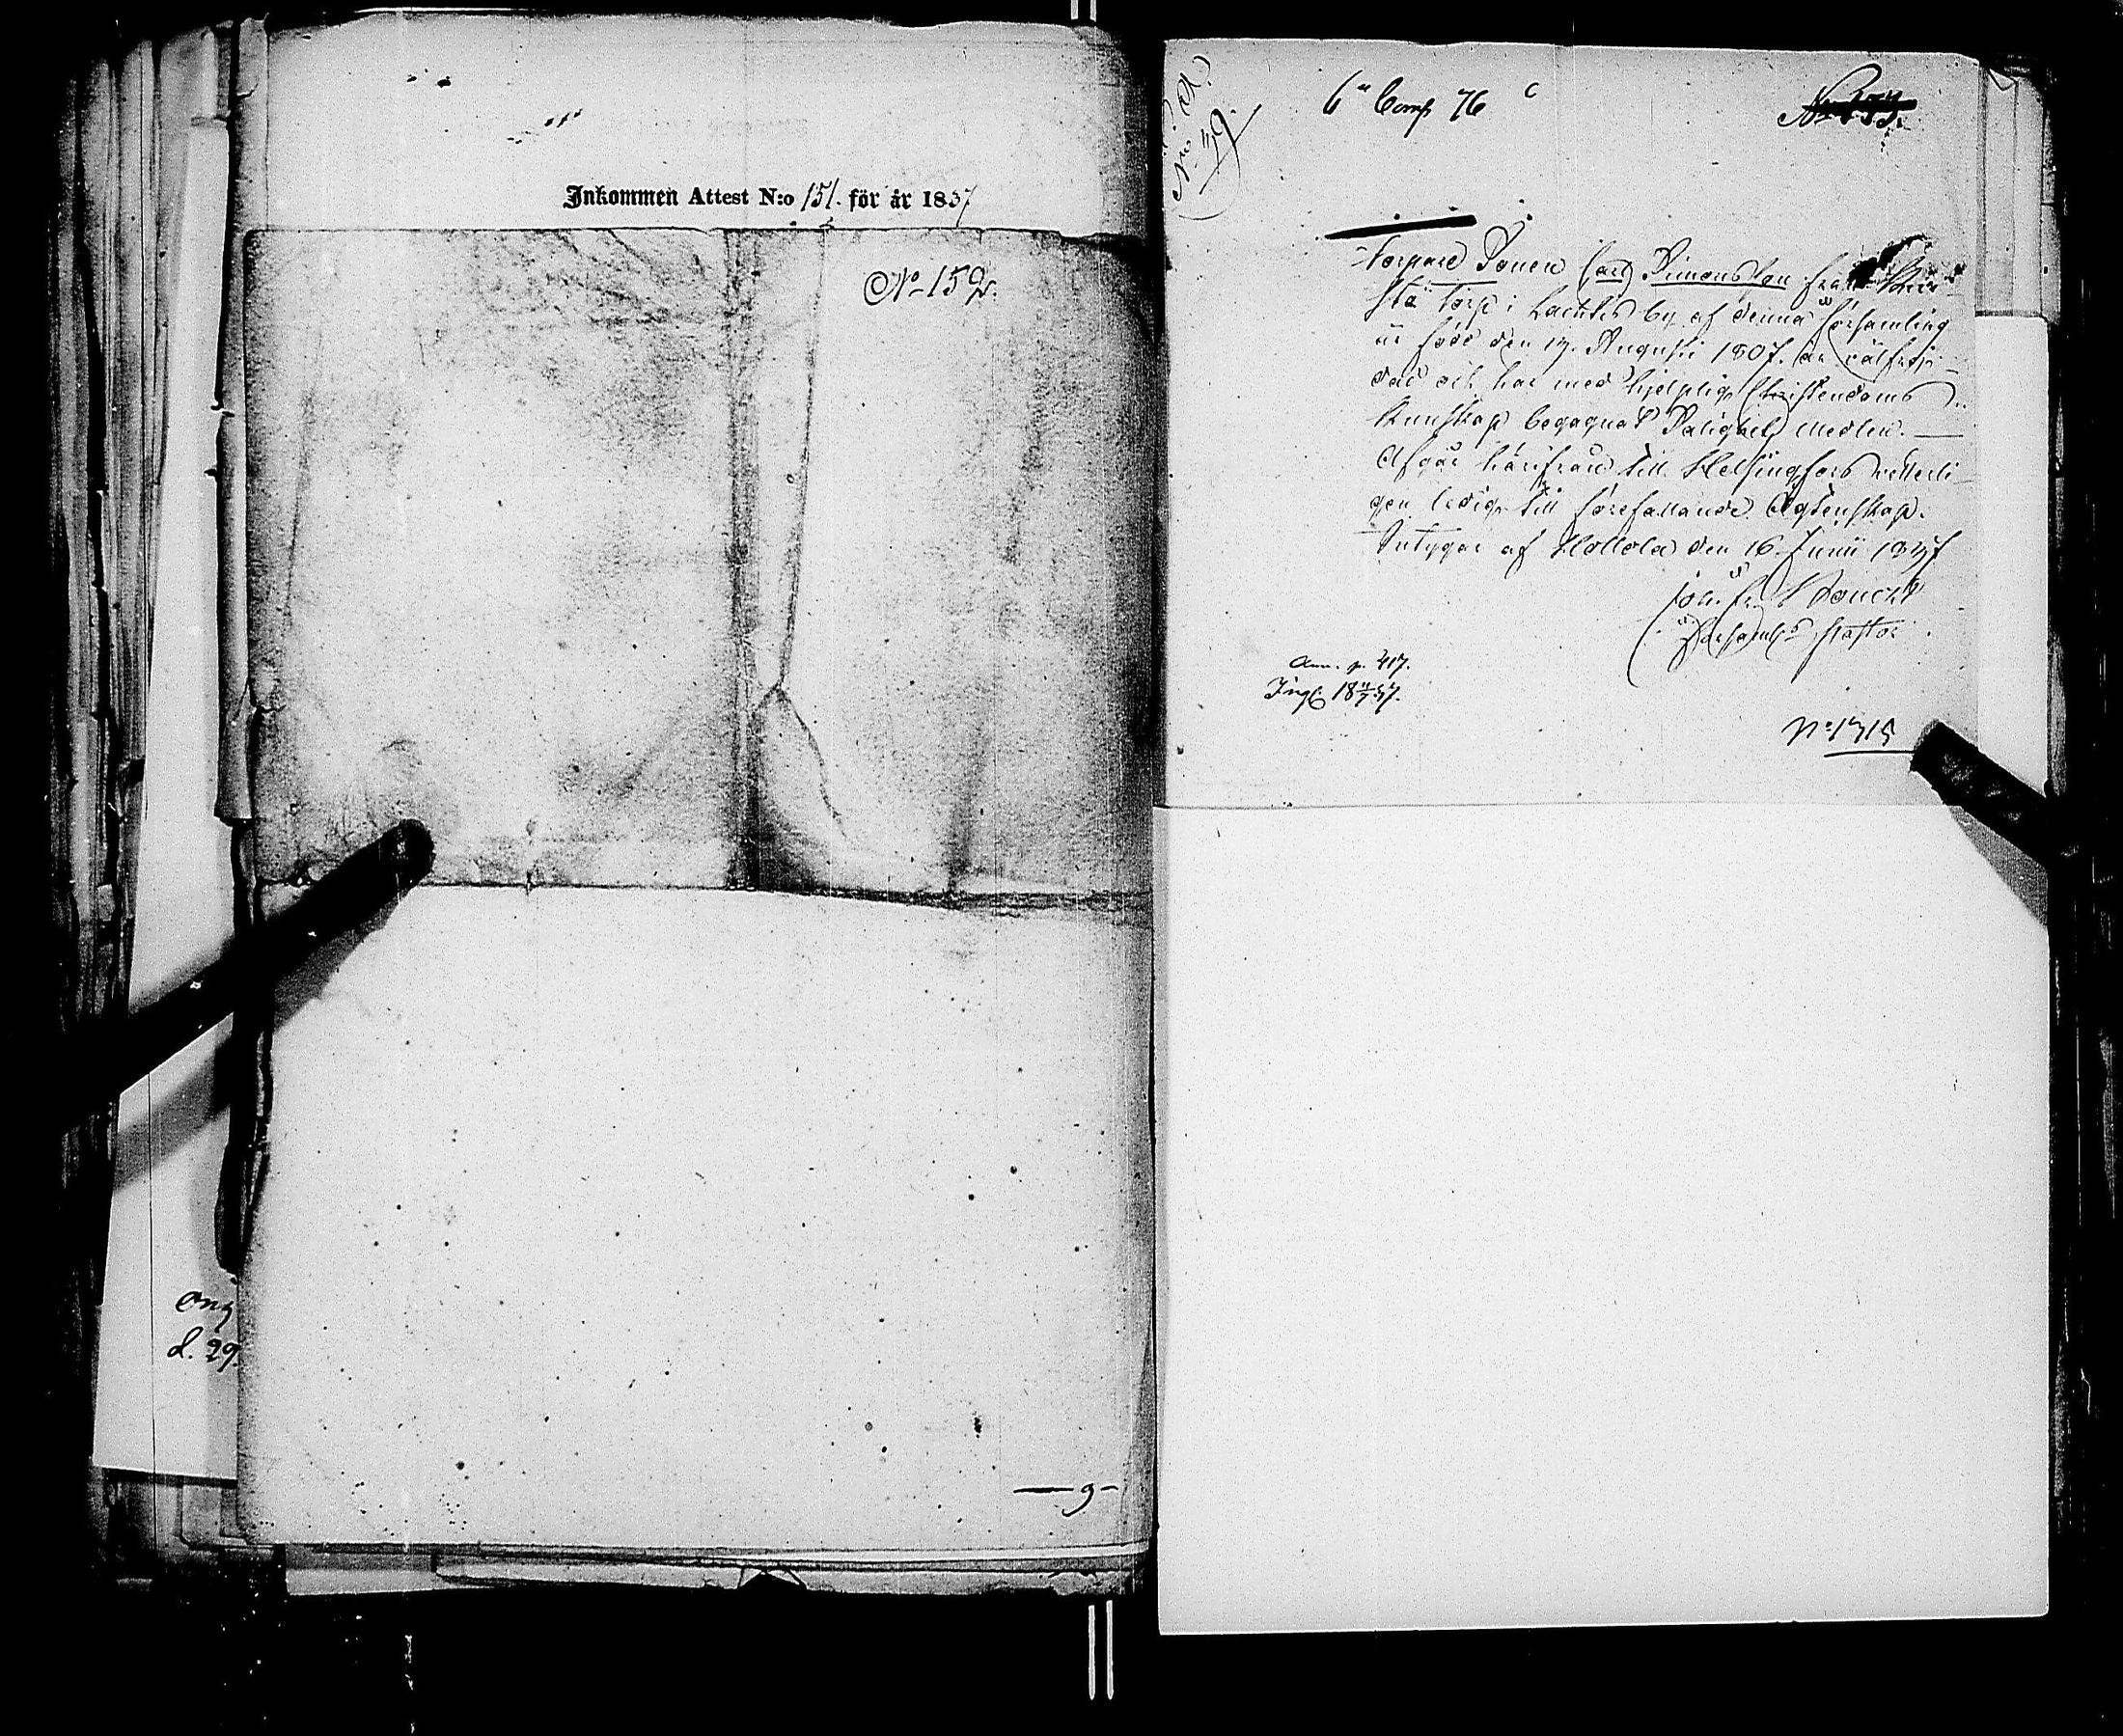 Inkommen Attest N:o 151. för år 1837
No 152.
Ong
d. 29.
9
No 49.
6te Comp 76
No 173.
Torpare Sonen Carl Simonsson från
sta torp i Lachtis by af denna församling
är född den 17. Augusti 1807. är välfräj-
dad och har med hjelplig Christendoms
kunskap begagnat Salighets medlen. —
Afgår härifrån till Helsingfors vetterli-
gen ledig till förefallande Ägtenskap.
Intygar af Hollola den 16 Junii 1837
Joh. Fr.
Församls Pastor
Ann. p. 417.
Ingf. 18 11/7 37.
No 1715